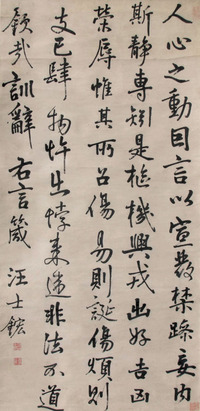 人心之動因言以宣發禁躁妄内
斯靜專矧是樞機興戎出好吉凶
榮辱惟其所召傷易則誕傷煩則
支己肆物忤出悖来違非法不道
欽哉訓辭 右言箴 汪士鋐